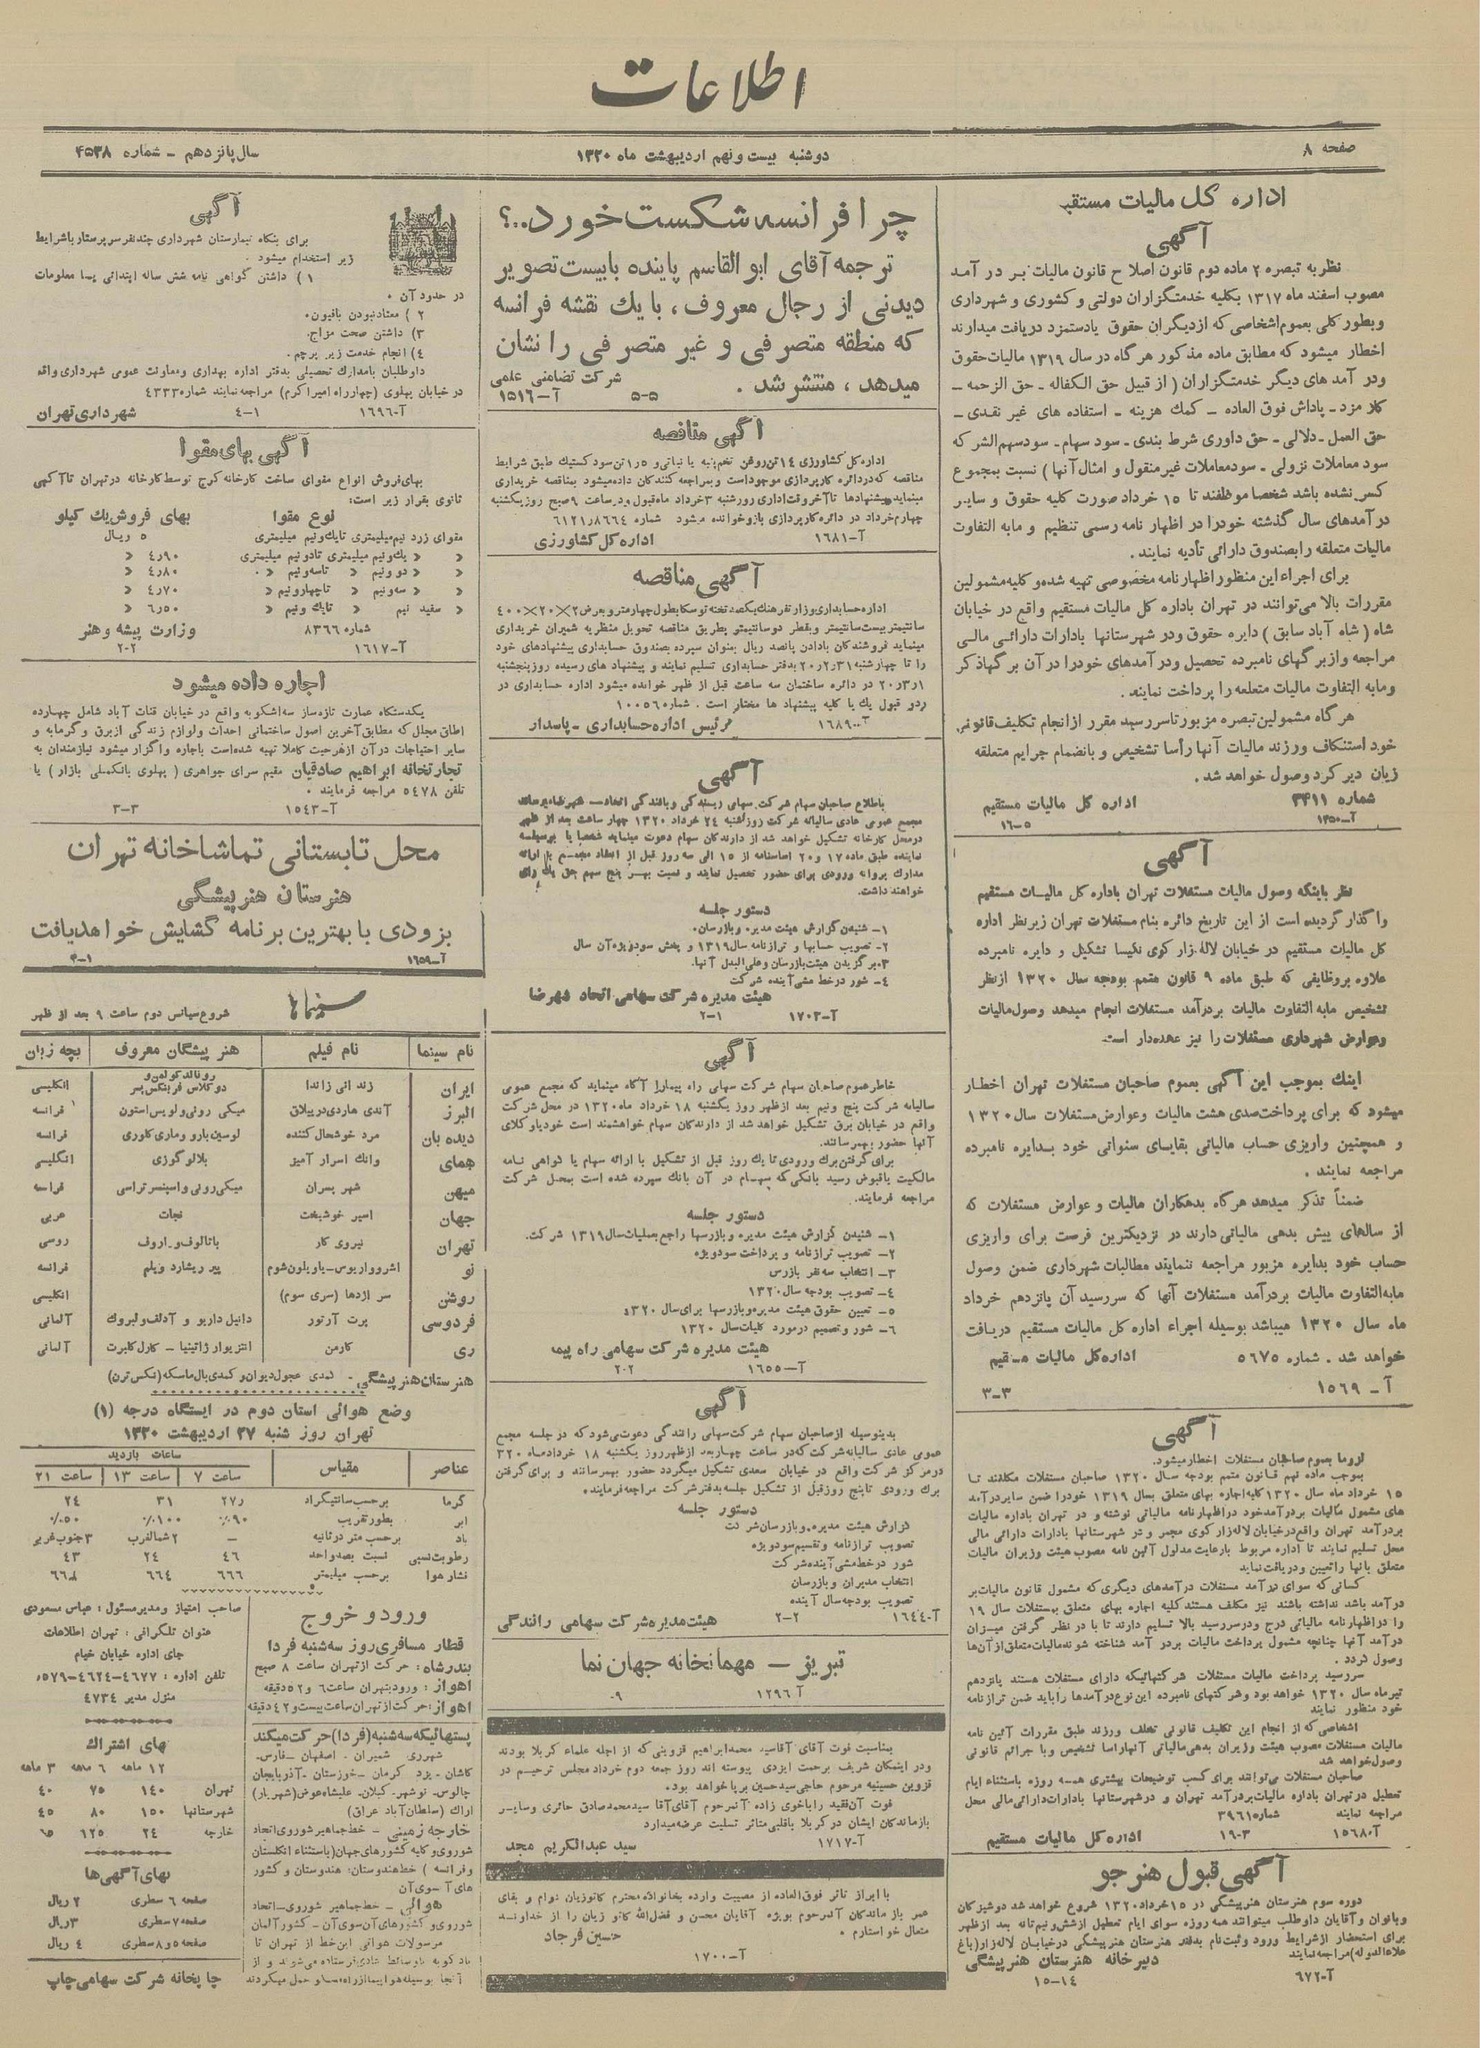 اطلاعات
صفحه ۸
دوشنبه بیست و نهم اردیبهشت ماه ۱۳۲۰
سال پانزدهم - شماره ۴۵۳۸
اداره کل مالیات مستقیم
آگهی
نظر به تبصره ۲ ماده دوم قانون اصلاح قانون مالیات بر درآمد
مصوب اسفند ماه ۱۳۱۷ بکلیه خدمتگزاران دولتی و کشوری و شهرداری
و بطور کلی بعموم اشخاصی که از دیگران حقوق یا دستمزد دریافت میدارند
اخطار میشود که مطابق ماده مذکور هر گاه در سال ۱۳۱۹ مالیات حقوق
و در آمد های دیگر خدمتگزاران ( از قبیل حق الکفاله - حق الزحمه -
کار مزد - پاداش فوق العاده - کمك هزینه - استفاده های غیر نقدی -
حق العمل - دلالی - حق داوری شرط بندی - سود سهام - سود سهم الشرکه
سود معاملات نزولی - سود معاملات غیر منقول و امثال آنها ) نسبت بمجموع
کسر نشده باشد شخصا موظفند تا ۱۵ خرداد صورت کلیه حقوق و سایر
درآمدهای سال گذشته خود را در اظهار نامه رسمی تنظیم و مابه التفاوت
مالیات متعلقه را بصندوق دارائی تأدیه نمایند .
برای اجراء این منظور اظهارنامه مخصوصی تهیه شده و کلیه مشمولین
مقررات بالا می‌توانند در تهران باداره کل مالیات مستقیم واقع در خیابان
شاه ( شاه آباد سابق ) دایره حقوق و در شهرستانها بادارات دارائی مالی
مراجعه و از برگهای نامبرده تحصیل و درآمدهای خود را در آن برگها ذکر
و مابه التفاوت مالیات متعلقه را پرداخت نمایند .
هر گاه مشمولین تبصره مزبور تا سررسید مقرر از انجام تکلیف قانونی
خود استنکاف ورزند مالیات آنها رأسا تشخیص و بانضمام جرایم متعلقه
زیان دیر کرد وصول خواهد شد .
شماره ۳۴۱۱ اداره کل مالیات مستقیم
آ-۱۳۵۰ ۱۶-۵
آگهی
نظر باینکه وصول مالیات مستغلات تهران باداره کل مالیات مستقیم
واگذار گردیده است از این تاریخ دائره بنام مستغلات تهران زیر نظر اداره
کل مالیات مستقیم در خیابان لاله زار کوی نکیسا تشکیل و دایره نامبرده
علاوه بر وظایفی که طبق ماده ۹ قانون متمم بودجه سال ۱۳۲۰ از نظر
تشخیص مابه التفاوت مالیات بر درآمد مستغلات انجام میدهد وصول مالیات
و عوارض شهرداری مستغلات را نیز عهده دار است.
اینك بموجب این آگهی بعموم صاحبان مستغلات تهران اخطار
میشود که برای پرداخت صدی هشت مالیات و عوارض مستغلات سال ۱۳۲۰
و همچنین واریزی حساب مالیاتی بقایای سنواتی خود بدایره نامبرده
مراجعه نمایند .
ضمناً تذکر میدهد هر گاه بدهکاران مالیات و عوارض مستغلات که
از سالهای پیش بدهی مالیاتی دارند در نزدیکترین فرصت برای واریزی
حساب خود بدایره مزبور مراجعه ننمایند مطالبات شهرداری ضمن وصول
مابه التفاوت مالیات بردرآمد مستغلات آنها که سررسید آن پانزدهم خرداد
ماه سال ۱۳۲۰ میباشد بوسیله اجراء اداره کل مالیات مستقیم دریافت
خواهد شد . شماره ۵۶۷۵ اداره کل مالیات مستقیم
آ - ۱۵۶۹ ۳-۳
آگهی
لزوما بعموم صاحبان مستغلات اخطار میشود.
بموجب ماده نهم قانون متمم بودجه سال ۱۳۲۰ صاحبان مستغلات مکلفند تا
۱۵ خرداد ماه سال ۱۳۲۰ کلیه اجاره بهای متعلق بسال ۱۳۱۹ خود را ضمن سایر درآمد
های مشمول مالیات بردرآمد خود در اظهارنامه مالیاتی نوشته و در تهران باداره مالیات
بردرآمد تهران واقع در خیابان لاله زار کوی مجمر و در شهرستانها بادارات دارائی مالی
محل تسلیم نمایند تا اداره مربوط با رعایت مدلول آئین نامه مصوب هیئت وزیران مالیات
متعلق بآنها را تعیین و دریافت نماید
کسانی که سوای درآمد مستغلات درآمدهای دیگری که مشمول قانون مالیات بر
درآمد باشد نداشته باشند نیز مکلف هستند کلیه اجاره بهای متعلق بمستغلات سال ۱۹
را در اظهارنامه مالیاتی درج و در سررسید بالا تسلیم دارند تا با در نظر گرفتن میزان
درآمد آنها چنانچه مشمول پرداخت مالیات بردرآمد شناخته شوند مالیات متعلق از آن‌ها
وصول گردد .
سررسید پرداخت مالیات مستغلات شرکتهائیکه دارای مستغلات هستند پانزدهم
تیر ماه سال ۱۳۲۰ خواهد بود و شرکتهای نامبرده این نوع درآمدها را باید ضمن ترازنامه
خود منظور نمایند
اشخاصی که از انجام این تکلیف قانونی تخلف ورزند طبق مقررات آئین نامه
مالیات مستغلات مصوب هیئت وزیران بدهی مالیاتی آنها رأسا تشخیص و با جرائم قانونی
وصول خواهد شد
صاحبان مستغلات می‌توانند برای کسب توضیحات بیشتری همه روزه باستثناء ایام
تعطیل در تهران باداره مالیات بردرآمد تهران و در شهرستانها بادارات دارائی مالی محل
مراجعه نمایند شماره ۳۹۶۱
آ-۱۵۶۸ ۱۹-۳ اداره کل مالیات مستقیم
آگهی قبول هنرجو
دوره سوم هنرستان هنرپیشگی در ۱۵ خرداد ۱۳۲۰ شروع خواهد شد دوشیزگان
و بانوان و آقایان داوطلب میتوانند همه روزه سوای ایام تعطیل از شش و نیم تا نه بعد از ظهر
برای استحضار از شرایط ورود و ثبت نام بدفتر هنرستان هنرپیشگی در خیابان لاله زار (باغ
علاءالدوله) مراجعه نمایند
دبیرخانه هنرستان هنرپیشگی
آ-۶۷۲ ۱۵-۱۴
چرا فرانسه شکست خورد..؟
ترجمه آقای ابوالقاسم پاینده با بیست تصویر
دیدنی از رجال معروف، با یك نقشه فرانسه
که منطقه متصرفی و غیر متصرفی را نشان
میدهد، منتشر شد .
شرکت تضامنی علمی
۵-۵ آ-۱۵۱۶
آگهی مناقصه
اداره کل کشاورزی ۱۴ تن روغن تخم پنبه یا نباتی و ۱٫۵ تن سود کستیك طبق شرایط
مناقصه که در دائره کارپردازی موجود است و بمراجعه کنندگان داده میشود بمناقصه خریداری
مینماید پیشنهادها تا آخر وقت اداری روز شنبه ۳ خرداد ماه قبول و در ساعت ۹ صبح روز یکشنبه
چهارم خرداد در دائره کارپردازی باز و خوانده میشود شماره ۶۱۲۱٫۸۶۶۴
آ-۱۶۸۱ اداره کل کشاورزی
آگهی مناقصه
اداره حسابداری وزارت فرهنگ یکصد تخته توسکا بطول چهار متر و بعرض ۲×۲۰×۴۰۰
سانتیمتر بیست سانتیمتر و بقطر دو سانتیمتر بطریق مناقصه تحویل منظریه شمیران خریداری
مینماید فروشندگان با دادن پانصد ریال بعنوان سپرده بصندوق حسابداری پیشنهادهای خود
را تا چهارشنبه ۲۰٫۲٫۳۱ بدفتر حسابداری تسلیم نمایند و پیشنهاد های رسیده روز پنجشنبه
۲۰٫۳٫۱ در دائره ساختمان سه ساعت قبل از ظهر خوانده میشود اداره حسابداری در
رد و قبول یك یا کلیه پیشنهاد ها مختار است . شماره ۱۰۰۵۶
آ-۱۶۸۹ رئیس اداره حسابداری - پاسدار
آگهی
باطلاع صاحبان سهام شرکت سهامی ریسندگی و بافندگی اتحاد - شهرضا میرساند
مجمع عمومی عادی سالیانه شرکت روز شنبه ۲۴ خرداد ۱۳۲۰ چهار ساعت بعد از ظهر
در محل کارخانه تشکیل خواهد شد از دارندگان سهام دعوت مینماید شخصا یا بوسیله
نماینده طبق ماده ۱۷ و ۲۰ اساسنامه از ۱۵ الی سه روز قبل از انعقاد مجمع با ارائه
مدارك پروانه ورودی برای حضور تحصیل نمایند و نسبت بهر پنج سهم حق یك رأی
خواهند داشت.
دستور جلسه
۱- شنیدن گزارش هیئت مدیره و بازرسان.
۲- تصویب حسابها و ترازنامه سال ۱۳۱۹ و پخش سود ویژه آن سال
۳- برگزیدن هیئت بازرسان و علی البدل آنها.
۴- شور در خط مشی آینده شرکت
هیئت مدیره شرکت سهامی اتحاد شهرضا
آ-۱۷۰۲ ۲-۱
آگهی
خاطر عموم صاحبان سهام شرکت سهامی راه پیما را آگاه مینماید که مجمع عمومی
سالیانه شرکت پنج و نیم بعد از ظهر روز یکشنبه ۱۸ خرداد ماه ۱۳۲۰ در محل شرکت
واقع در خیابان برق تشکیل خواهد شد از دارندگان سهام خواهشمند است خود یا وکلای
آنها حضور بهمرسانند.
برای گرفتن برك ورودی تا یك روز قبل از تشکیل با ارائه سهام یا گواهی نامه
مالکیت یا قبوض رسید بانکی که سهام در آن بانك سپرده شده است بمحل شرکت
مراجعه فرمایند.
دستور جلسه
۱- شنیدن گزارش هیئت مدیره و بازرسها راجع بعملیات سال ۱۳۱۹ شرکت.
۲- تصویب ترازنامه و پرداخت سود ویژه
۳- انتخاب سه نفر بازرس
۴- تصویب بودجه سال ۱۳۲۰
۵- تعیین حقوق هیئت مدیره و بازرسها برای سال ۴۳۲۰
۶- شور و تصمیم در مورد کلیات سال ۱۳۲۰
هیئت مدیره شرکت سهامی راه پیما
آ-۱۶۵۵ ۲-۲
آگهی
بدینوسیله از صاحبان سهام شرکت سهامی رانندگی دعوت می‌شود که در جلسه مجمع
عمومی عادی سالیانه شرکت که در ساعت چهار بعد از ظهر روز یکشنبه ۱۸ خرداد ماه ۳۲۰
در مرکز شرکت واقع در خیابان سعدی تشکیل میگردد حضور بهمرسانند و برای گرفتن
برك ورودی تا پنج روز قبل از تشکیل جلسه بدفتر شرکت مراجعه فرمایند.
دستور جلسه
گزارش هیئت مدیره و بازرسان شرکت
تصویب ترازنامه و تقسیم سود ویژه
شور در خط مشی آینده شرکت
انتخاب مدیران و بازرسان
تصویب بودجه سال آینده
آ-۱۶۴۴ ۲-۲ هیئت مدیره شرکت سهامی رانندگی
تبریز - مهمانخانه جهان نما
آ ۱۲۹۶ ۹-
بمناسبت فوت آقای آقاسید محمد ابراهیم قزوینی که از اجله علماء کربلا بودند
و در اینمکان شریف برحمت ایزدی پیوسته اند روز جمعه دوم خرداد مجلس ترحیم در
قزوین حسینیه مرحوم حاجی سید حسین برپا خواهد بود.
فوت آن فقید را باخوی زاده آنمرحوم آقای آقا سید محمد صادق حائری و سایر
بازماندگان ایشان در کربلا با قلبی متاثر تسلیت عرضه میدارد
آ-۱۷۱۷ سید عبدالکریم مجد
با ابراز تاثر فوق العاده از مصیبت وارده بخانواده محترم کانوزیان دوام و بقای
عمر بازماندگان آنمرحوم بویژه آقایان محسن و فضل الله کانوزیان را از خداوند
متعال خواستارم . حسین فرجاد
آ-۱۷۰۰
آگهی
برای بنگاه تیمارستان شهرداری چند نفر سرپرستار با شرایط
زیر استخدام میشود .
۱ ) داشتن گواهی نامه شش ساله ابتدائی یا معلومات
در حدود آن .
۲ ) معتاد نبودن بافیون.
۳) داشتن صحت مزاج.
۴ ) انجام خدمت زیر پرچم.
داوطلبان با مدارك تحصیلی بدفتر اداره بهداری و معاونت عمومی شهرداری واقع
در خیابان پهلوی (چهارراه امیر اکرم) مراجعه نمایند شماره ۴۳۳۳
آ-۱۶۹۶ ۴-۱ شهرداری تهران
آگهی بهای مقوا
بهای فروش انواع مقوای ساخت کارخانه کرج توسط کارخانه در تهران تا آگهی
ثانوی بقرار زیر است:
نوع مقوا بهای فروش یك کیلو
مقوای زرد نیم میلیمتری تا یك و نیم میلیمتری ۵ ریال
« « یك و نیم میلیمتری تا دو نیم میلیمتری ۴٫۹۰ «
« « دو و نیم « تا سه و نیم « ۴٫۸۰ «
« « سه و نیم « تا چهار و نیم « ۴٫۷۰ «
« سفید نیم « تا یك و نیم « ۶٫۵۰ «
شماره ۸۳۶۶ وزارت پیشه و هنر
آ-۱۶۱۷ ۲-۲
اجاره داده میشود
یکدستگاه عمارت تازه ساز سه اشکوبه واقع در خیابان قنات آباد شامل چهارده
اطاق مجلل که مطابق آخرین اصول ساختمانی احداث و لوازم زندگی از برق و گرمابه و
سایر احتیاجات در آن از هر حیث کاملا تهیه شده است باجاره واگزار میشود نیازمندان به
تجارتخانه ابراهیم صادقیان مقیم سرای جواهری ( پهلوی بانکملی بازار ) یا
تلفن ۵۴۷۸ مراجعه فرمایند .
آ-۱۵۴۳ ۳-۳
محل تابستانی تماشاخانه تهران
هنرستان هنرپیشگی
بزودی با بهترین برنامه گشایش خواهد یافت
آ-۱۶۵۹ ۴-۱
سینماها
شروع سیانس دوم ساعت ۹ بعد از ظهر
نام سینما | نام فیلم | هنرپیشگان معروف | بچه زبان
ایران | زندانی زاندا | رونالد کولمن و دوگلاس فربنکس پسر | انگلیسی
البرز | آندی هاردی در ییلاق | میکی رونی و لویس استون | فرانسه
دیده بان | مرد خوشحال کننده | لوسین بارو و ماری کلوری | فرانسه
همای | وانك اسرار آمیز | بلالوگوزی | انگلیسی
میهن | شهر پسران | میکی رونی و اسپنسر تراسی | فرانسه
جهان | اسیر خوشبخت | نجات | عربی
تهران | نیروی کار | باتالوف و اروف | روسی
نو | اشرو واریوس - یا و یلون شوم | پیر ریشارد ویلم | فرانسه
روشن | سر اژدها (سری سوم) | انگلیسی
فردوسی | پرت آرتور | دانیل داریو و آدلف ولبروك | آلمانی
ری | کارمن | انتریوار ژانینیا - کارل کلبرت | آلمانی
هنرستان هنرپیشگی - کمدی عجول دیوان و کمدی بال ماسکه (نکس ترن)
وضع هوائی استان دوم در ایستگاه درجه (۱)
تهران روز شنبه ۲۷ اردیبهشت ۱۳۲۰
عناصر | مقیاس | ساعات بازدید
ساعت ۷ | ساعت ۱۳ | ساعت ۲۱
گرما | برحسب سانتیگراد | ۲۷ | ۳۱ | ۲۴
ابر | بطور تقریب | ۹۰٪ | ۱۰۰٪ | ۵۰٪
باد | برحسب متر در ثانیه | - | ۲ شمالغرب | ۳ جنوب غربی
رطوبت نسبی | نسبت بصد واحد | ۴۶ | ۲۴ | ۴۳
فشار هوا | برحسب میلیمتر | ۶۶۶ | ۶۶۴
ورود و خروج
قطار مسافری روز سه شنبه فردا
بندرشاه : حرکت از تهران ساعت ۸ صبح
اهواز : ورود بتهران ساعت ۶ و ۵۲ دقیقه
اهواز : حرکت از تهران ساعت بیست و ۴۲ دقیقه
پستهائیکه سه شنبه (فردا) حرکت میکند
شهرری شمیران . اصفهان - فارس.
کاشان . یزد کرمان - خوزستان - آذربایجان
چالوس . نوشهر . گیلان . علیشاه عوض (شهریار)
اراك (سلطان آباد عراق)
خارجه زمینی - خط جماهیر شوروی اتحاد
شوروی و کلیه کشورهای جهان (باستثناء انگلستان
و فرانسه ) خط هندوستان: هندوستان و کشور
های آنسوی آن
هوائی - خط جماهیر شوروی - اتحاد
شوروی و کشورهای آن سوی آن - کشور آلمان
مرسولات هوائی این خط از تهران تا
بادکوبه با وسائط عادی فرستاده می‌شوند و از
آنجا بوسیله هواپیما ارسال و حمل میگردند
صاحب امتیاز و مدیر مسئول: عباس مسعودی
عنوان تلگرافی : تهران اطلاعات
جای اداره خیابان خیام
تلفن اداره : ۴۶۷۷-۴۶۲۴-۵۷۹
منزل مدیر ۴۷۳۴
بهای اشتراك
۱۲ ماهه ۶ ماهه ۳ ماهه
تهران ۱۴۰ ۷۵ ۴۰
شهرستانها ۱۵۰ ۸۰ ۴۵
خارجه ۲۴ ۱۲۵ ۶۵
بهای آگهی ها
صفحه ۶ سطری ۲ ریال
صفحه ۷ سطری ۳ ریال
صفحه ۵ و ۸ سطری ۴ ریال
چاپخانه شرکت سهامی چاپ